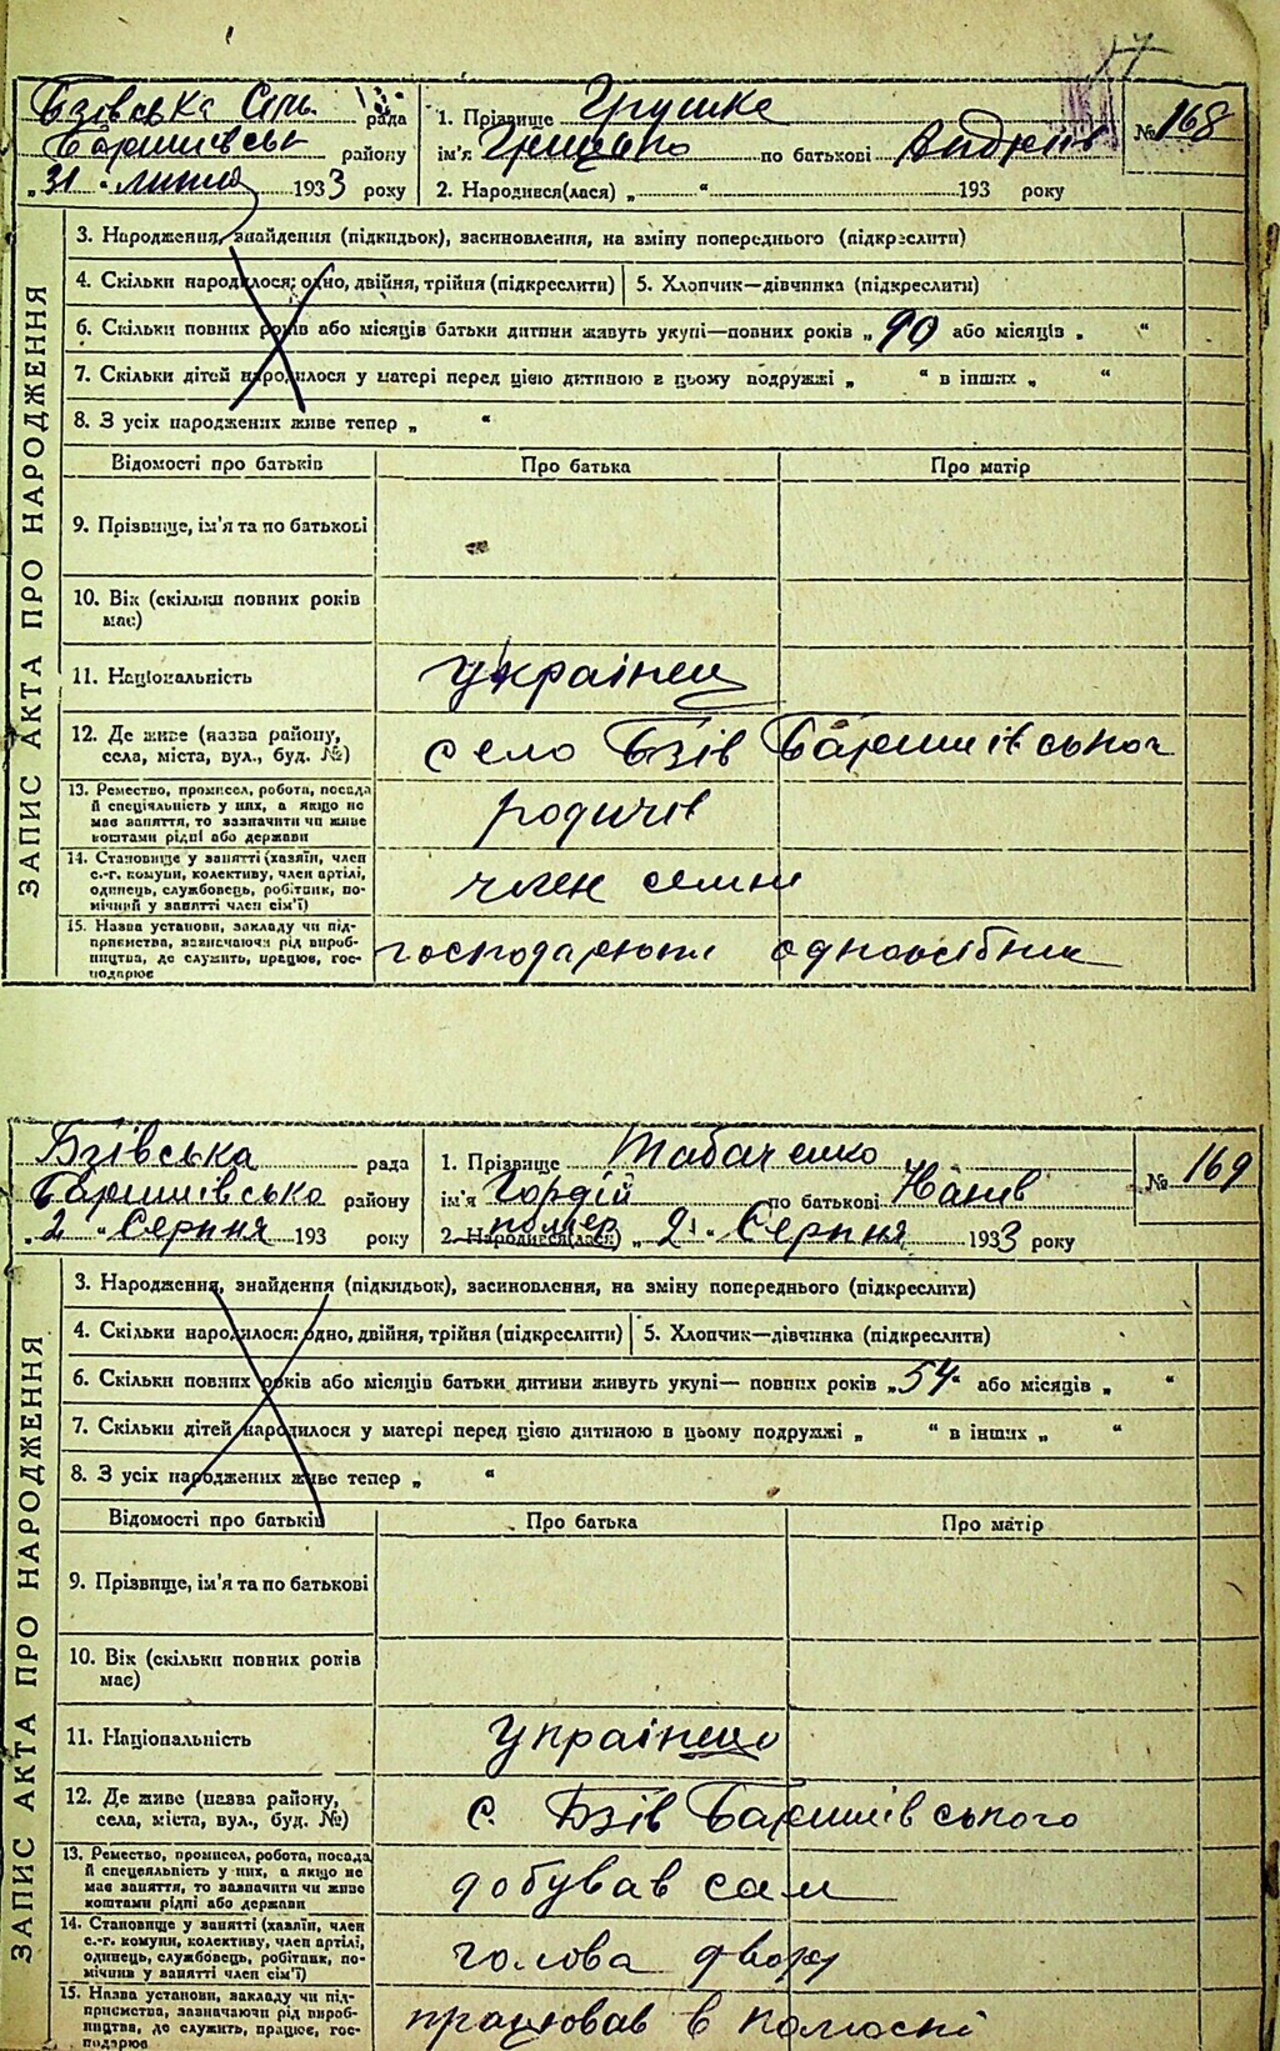 17
Бзівська Сіль рада
Баришівськ району
„31“ липня 1933 року
1. Прізвище Грушка
ім'я Грицько по батькові Андріїв
2. Народився(лася) „ “ 193 року
№ 168
ЗАПИС АКТА ПРО НАРОДЖЕННЯ
3. Народження, знайдення (підкидьок), засиновлення, на зміну попереднього (підкреслити)
4. Скільки народилося: одно, двійня, трійня (підкреслити) 5. Хлопчик—дівчинка (підкреслити)
6. Скільки повних років або місяців батьки дитини живуть укупі—повних років „90 або місяців „ “
7. Скільки дітей народилося у матері перед цією дитиною в цьому подружжі „ “ в інших „ “
8. З усіх народжених живе тепер „ “
Відомості про батьків Про батька Про матір
9. Прізвище, ім'я та по батькові
10. Вік (скільки повних років
має)
11. Національність українец
12. Де живе (назва району,
села, міста, вул., буд. №) село Бзів Баришівського
13. Ремество, промисел, робота, посада
й спеціяльність у них, а якщо не
має заняття, то зазначити чи живе
коштами рідні або держави родичів
14. Становище у занятті (хазяїн, член
с.-г. комуни, колективу, член артілі,
одинець, службовець, робітник, по-
мічний у занятті член сім'ї) член семни
15. Назва установи, закладу чи під-
приємства, зазначаючи рід вироб-
ництва, де служить, працює, гос-
подарює одноосібник
Бзівська рада
Баришівсько району
„2“ Серпня 193 року
1. Прізвище Табаченко
ім'я Гордій по батькові
помер
2. Народився(лася) „2“ Серпня 1933 року
№ 169
ЗАПИС АКТА ПРО НАРОДЖЕННЯ
3. Народження, знайдення (підкидьок), засиновлення, на зміну попереднього (підкреслити)
4. Скільки народилося: одно, двійня, трійня (підкреслити) 5. Хлопчик—дівчинка (підкреслити)
6. Скільки повних років або місяців батьки дитини живуть укупі— повних років „54“ або місяців „ “
7. Скільки дітей народилося у матері перед цією дитиною в цьому подружжі „ “ в інших „ “
8. З усіх народжених живе тепер „ “
Відомості про батьків Про батька Про матір
9. Прізвище, ім'я та по батькові
10. Вік (скільки повних років
має)
11. Національність
12. Де живе (назва району,
села, міста, вул., буд. №) с. Бзів Баришівського
13. Ремество, промисел, робота, посада
й спецеяльність у них, а якщо не
має заняття, то зазначити чи живе
коштами рідні або держави добував сам
14. Становище у занятті (хазяїн, член
с.-г. комуни, колективу, член артілі,
одинець, службовець, робітник, по-
мічнив у занятті член сім'ї) голова двору
15. Назва установи, закладу чи під-
приємства, зазначаючи рід вироб-
ництва, де служить, працює, гос-
подарює працював в колгоспі